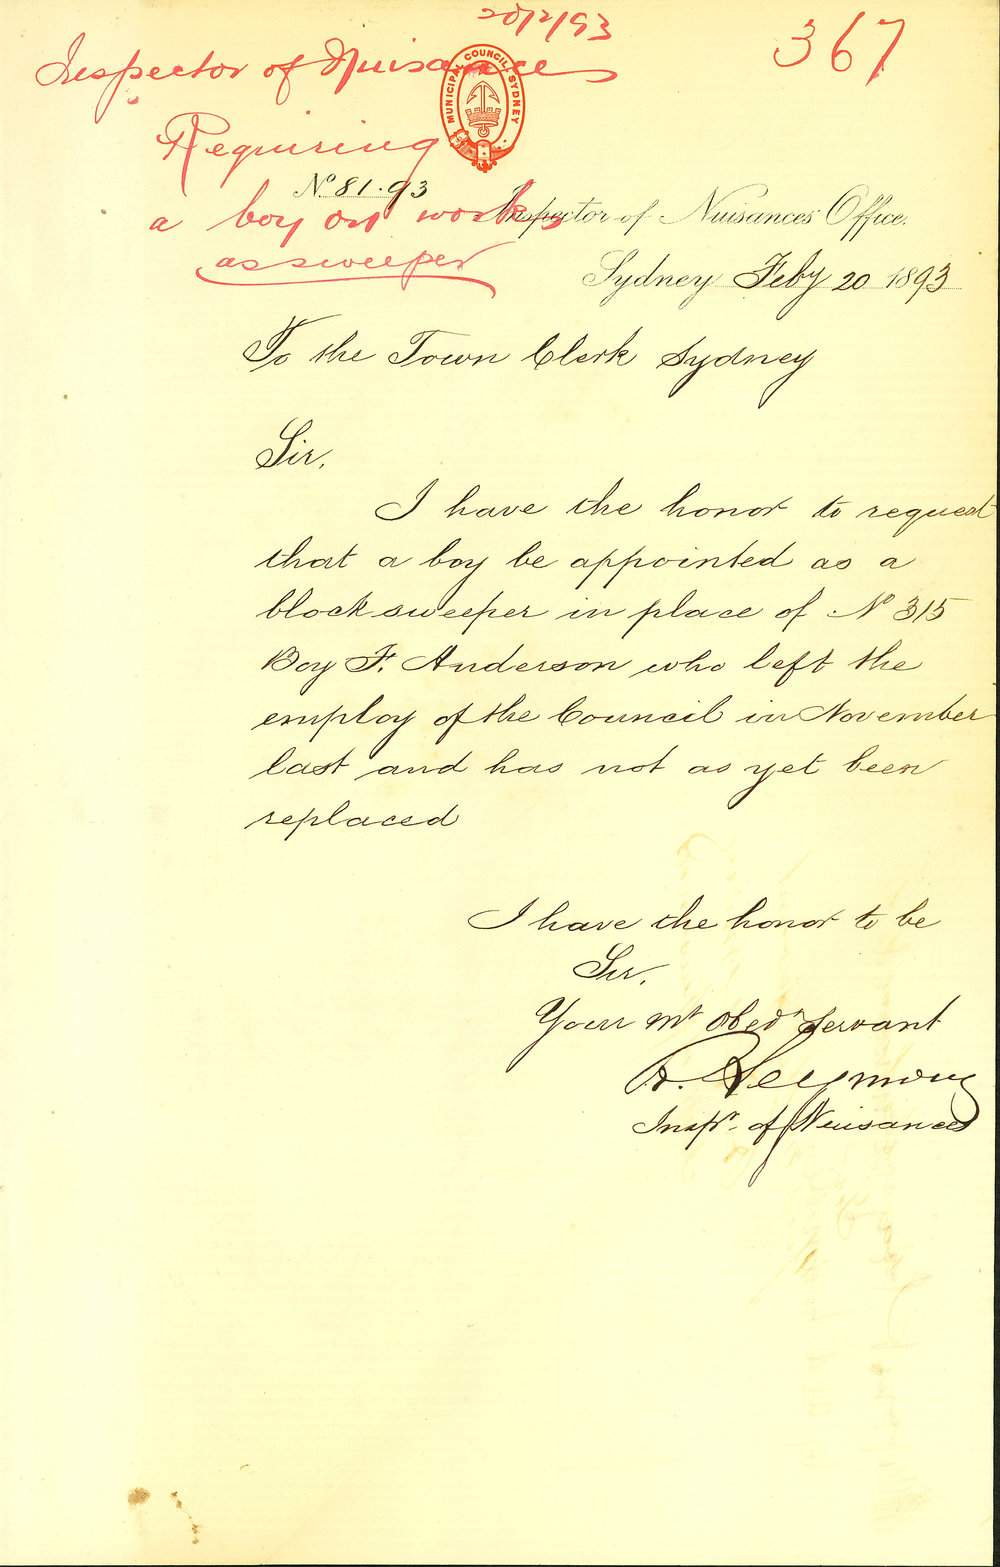 20/2/93
367
Inspector of Nuisances
MUNICIPAL COUNCIL SYDNEY
Requiring
No 81.93
a boy on works
Inspector of Nuisances Office.
as sweeper
Sydney Feby 20 1893
To the Town Clerk Sydney
Sir,
I have the honor to request
that a boy be appointed as a
block sweeper in place of No 315
Boy F. Anderson who left the
employ of the Council in November
last and has not as yet been
replaced
I have the honor to be
Sir,
Your Mt Obedt Servant
R. Seymour
Inspr. of Nuisances